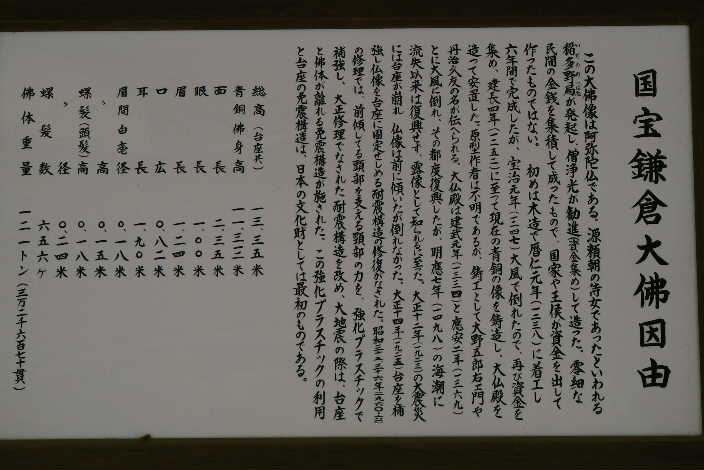 国宝鎌倉大佛因由
この大佛像は阿弥陀仏である。源頼朝の侍女であったといわれる
稻多野局が発起し、僧浄光が勧進(資金集め)をして造った。零細な
民間の金銭を集積して成ったもので、国家や王侯が資金を出して
作ったものではない。初めは木造で暦仁元年(一二三八)に着工し
六年間で完成したが、宝治元年(一二四七)大風で倒れたので、再び資金を
集め、建長四年(一二五二)に至って現在の青銅の像を鋳造し、大仏殿を
造って安置した。原型作者は不明であるが、鋳工として大野五郎右エ門や
丹治久友の名が伝へられる。大仏殿は建武元年(一三三四)と應安二年(一三六九)
とに大風に倒れ、その都度復興したが、明應七年(一四九八)の海潮に
流失以来は復興せず、露像として知られるに至った。大正十二年(一九二三)の大震災
には台座が崩れ 仏像は前に傾いたが倒れなかった。大正十四年(一九二五)台座を補
強し仏像を台座に固定せしめる耐震構造の修復がなされた。昭和三五-三六年(一九六〇-六一)
の修理では、前傾してる頸部を支える頸部の力を、強化プラスチックで
補強し、大正修理でなされた耐震構造を改め、大地震の際は、台座
と佛体が離れる免震構造が施された。この強化プラスチックの利用
と台座の免震構造は、日本の文化財としては最初のものである。
総高(台座共) 一三.三五米
青銅佛身高 一一.三一二米
面長 二.三五米
眼長 一.〇〇米
眉長 一.二四米
口広 〇.八二米
耳長 一.九〇米
眉間白毫径 〇.一八米
〃 高 〇.一五米
螺髪(頭髪)高 〇.一八米
〃 径 〇.二四米
螺髪数 六五六ヶ
佛体重量 一二一トン(三万二千六百七十貫)